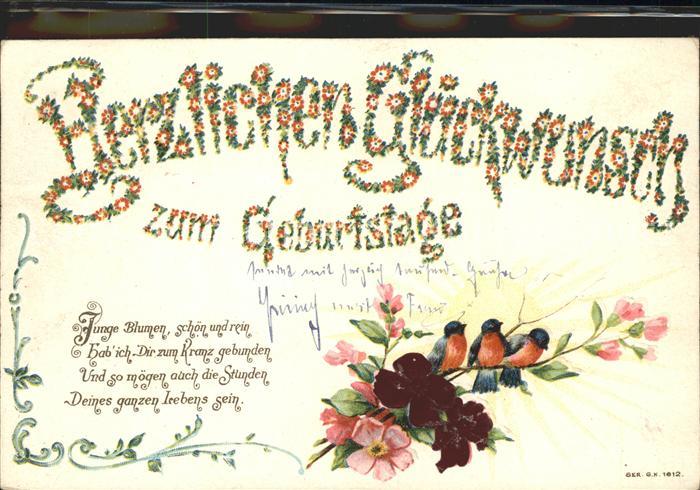 Herzlichen Glückwunsch
zum Geburtstage
sendet mit herzlich tausend Grüße
Junge Blumen, schön und rein
Hab' ich Dir zum Kranz gebunden
Und so mögen auch die Stunden
Deines ganzen Lebens sein.
SER. G.K. 1612.